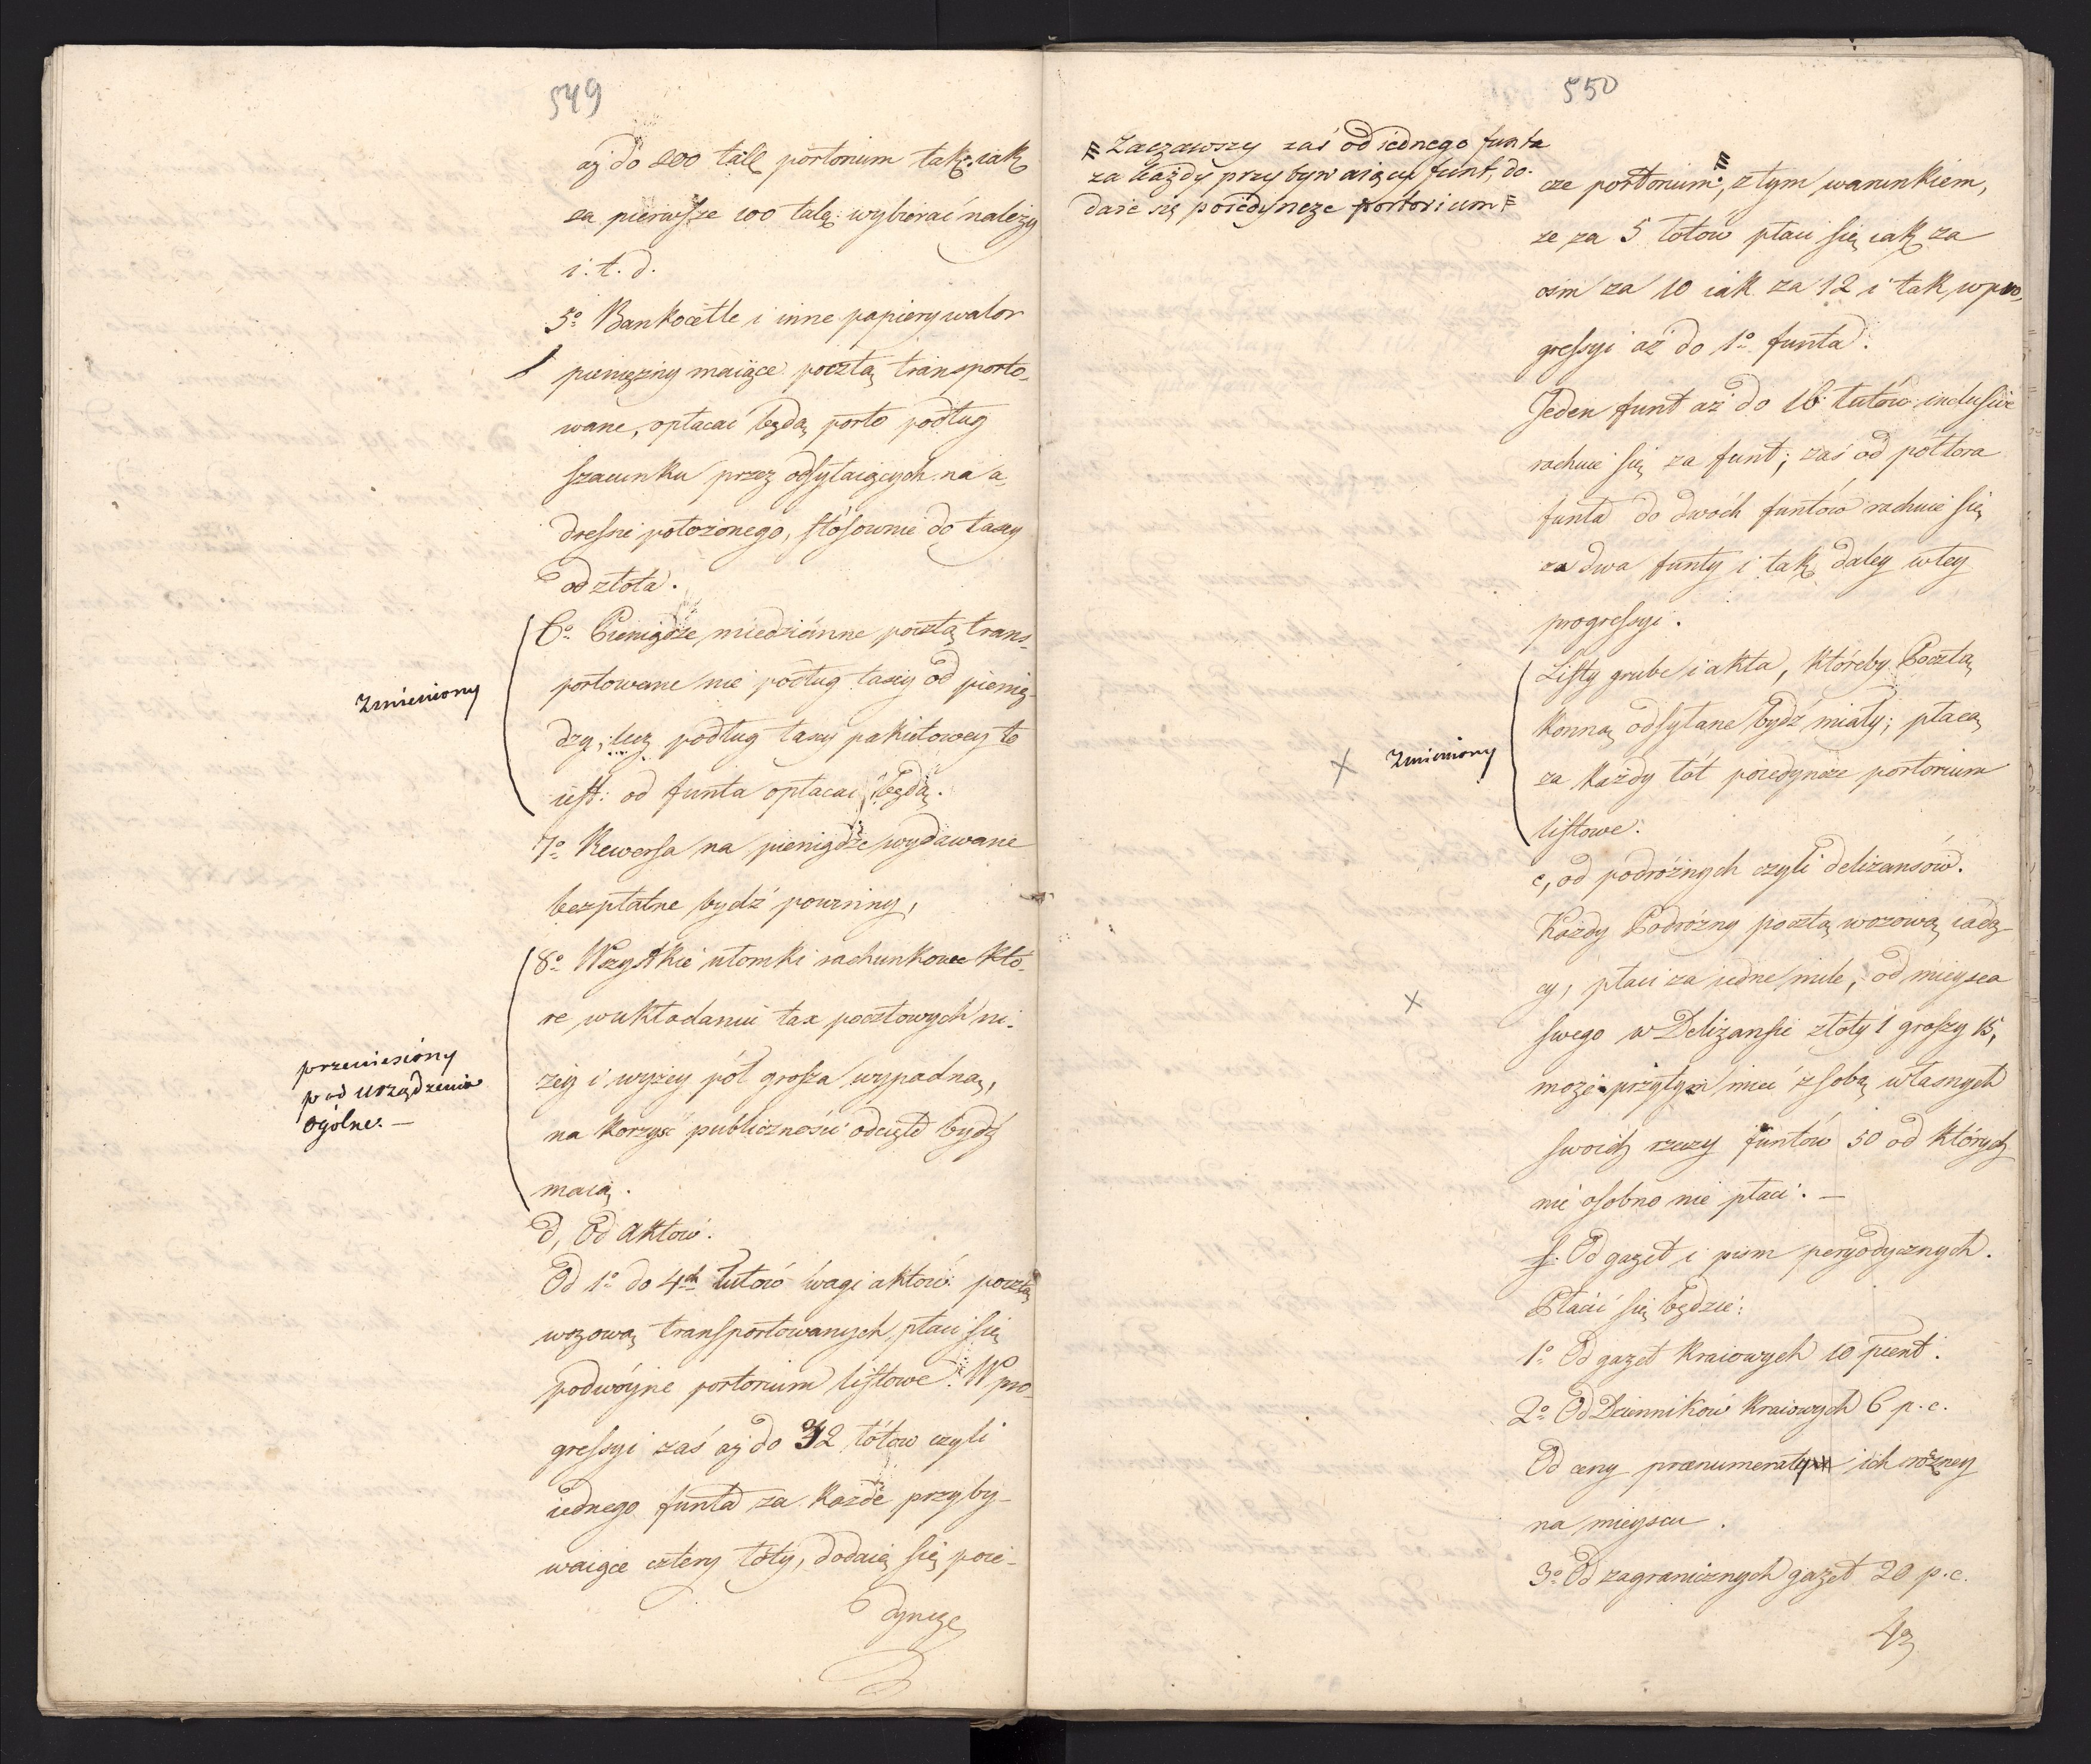 549
aż do 200 tall portorium tak iak
za pierwsze 100 tala: wybierać należy
i. t. d.
5o Bankocetle i inne papiery walor
pieniężny maiące pocztą transporto-
wane, opłacać będą porto podług
szacunku przez odsyłaiących na a-
dressie położonego, stosownie do taxy
od złota.
6o Pieniądze miedziánne pocztą trans-
portowane nie podług taxy od pienię-
dzy, lecz podług taxy pakietowey to
iest: od funta opłacać będą.
Zmieniony
7o Rewersa na pieniądze wydawane
bezpłatne bydź powinny,
8o Wszystkie ułomki rachunkowe któ-
re w układaniu tax pocztowych ni-
żey i wyżey pół grosza wypadną,
na korzyść publiczności odcięte bydź
maią.
przeniesióny
pod urządzenia
Ogólne. —
d, Od Aktów.
Od 1o do 4ch łutów wagi aktów pocztą
wozową transportowanych, płaci się
podwóyne portorium listowe. W pro-
gressyi zaś aż do 32 łótow czyli
iednego funta za każde przyby-
waiące cztery łóty, dodaie się poie-
dyncze
550
Zacząwszy zaś od iednego funta
za każdy przybywaiący funt, do-
daie się poiedyncze portorium
cze portorium, z tym warunkiem,
że za 5 łótow płaci się iak za
osm za 10 iak za 12 i tak w pro-
gressyi aż do 1o funta.
Jeden funt aż do 16 łutów inclusive
rachuie się za funt; zaś od półtora
funta do dwóch funtów rachuie się
za dwa funty i tak daley w tey
progressyi.
Listy grube i akta, któreby Pocztą
konną odsyłane bydź miały; płacą
za każdy łót poiedyncze portorium
listowe.
X Zmieniony
e, od podróżnych czyli deliżansów.
Każdy Podróżny pocztą wozową iadą-
cy, płaci za iedne mile, od mieysca
swego w Deliżansie złoty 1 groszy 15,
X
może przytym mieć z sobą własnych
swoich rzeczy funtów 50 od których
nic osobno nie płaci. —
f. Od gazet i pism peryodycznych.
Płacić się będzie:
1o Od gazet kraiowych 10 pcent.
2o Od Dzienników kraiowych 6 p. c.
Od ceny prænumeraty ich rożney
na mieyscu.
3o Od zagranicznych gazet 20 p. c.
4o